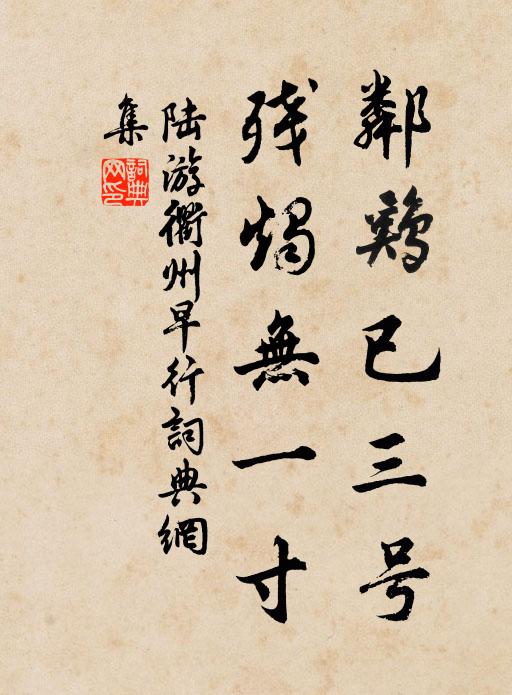 鄰鷄已三号
残燭無一寸
陆游衢州早行詞典網
集
詞典
网印